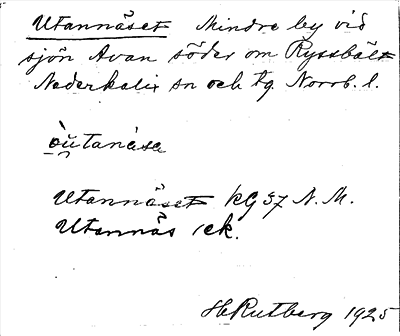 Utannäset Mindre by vid
sjön Avan söder om Ryssbält
Nederkalix sn och tg. Norrb. l.
òu̯tanäsa
Utannäset kG 37 N. M.
Utannäs ek.
H Rutberg 1925